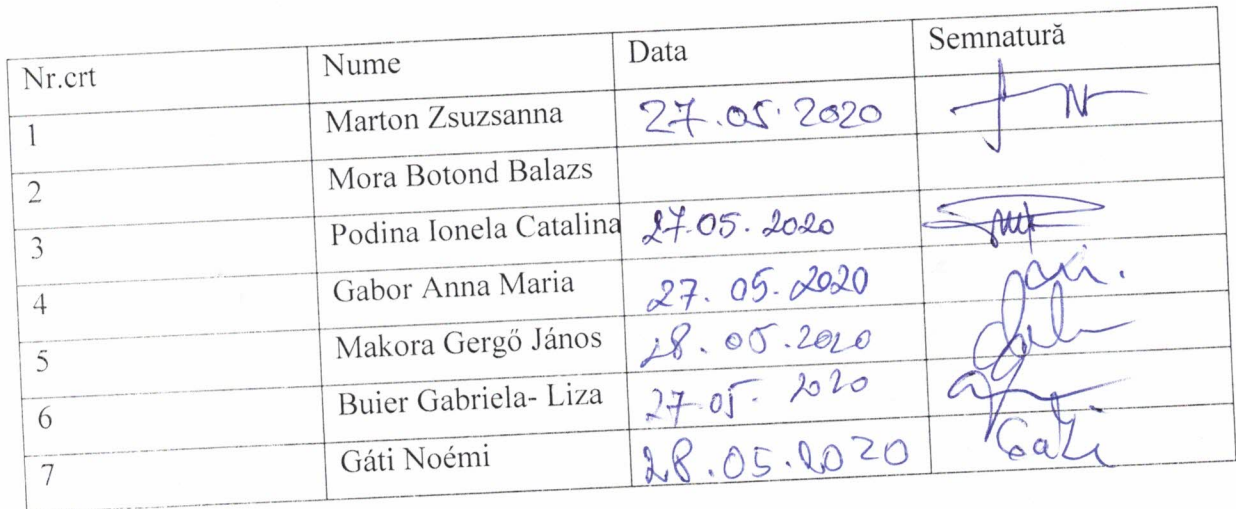 Nr.crt Nume Data Semnatură
1 Marton Zsuzsanna 27.05.2020
2 Mora Botond Balazs
3 Podina Ionela Catalina 27.05.2020
4 Gabor Anna Maria 27.05.2020
5 Makora Gergő János 28.05.2020
6 Buier Gabriela- Liza 27.05.2020
7 Gáti Noémi 28.05.2020 Gáti